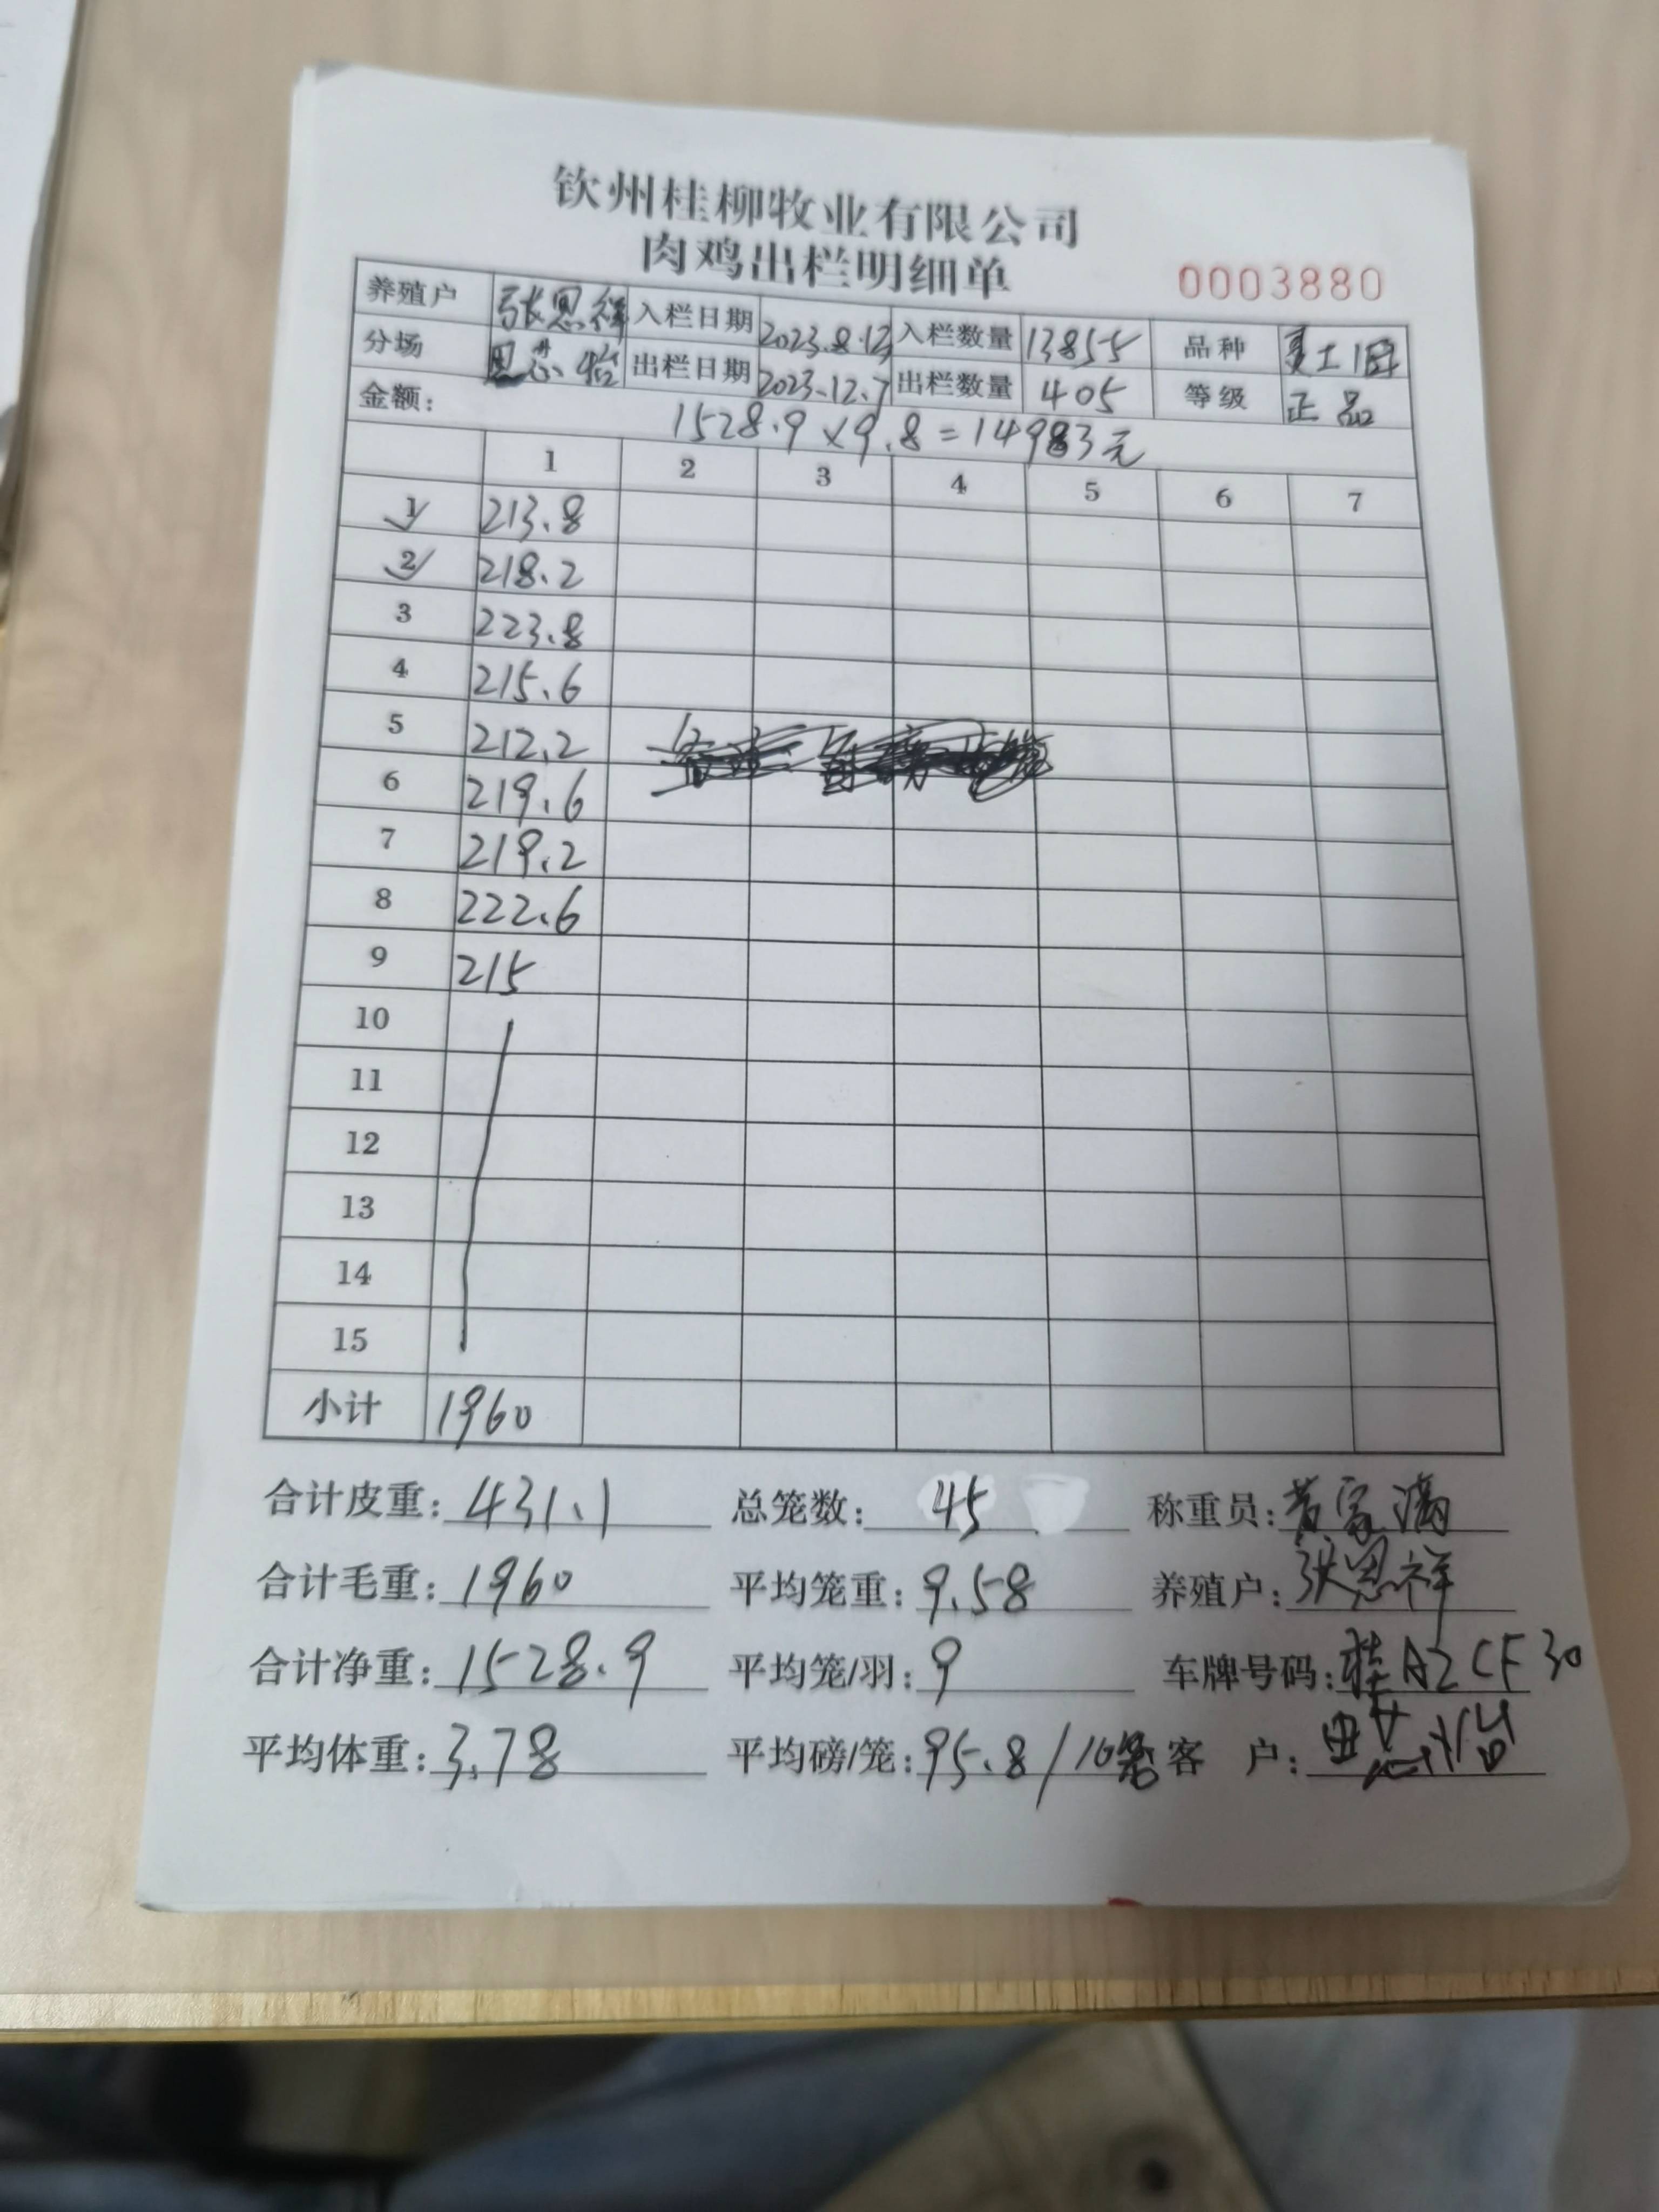 钦州桂柳牧业有限公司
肉鸡出栏明细单
0003880
养殖户 张恩祥 入栏日期 2023.8.13 入栏数量 13855 品种
分场 出栏日期 2023.12.7 出栏数量 405 等级 正品
金额: 1528.9×9.8=14983元
1 2 3 4 5 6 7
1 213.8
2 218.2
3 223.8
4 215.6
5 212.2
6 219.6
7 219.2
8 222.6
9 215
10
11
12
13
14
15
小计 1960
合计皮重: 431.1 总笼数: 45 称重员: 黄家满
合计毛重: 1960 平均笼重: 9.58 养殖户: 张恩祥
合计净重: 1528.9 平均笼/羽: 9 车牌号码: 桂AZCF30
平均体重: 3.78 平均磅/笼: 95.8/10笼 客 户: